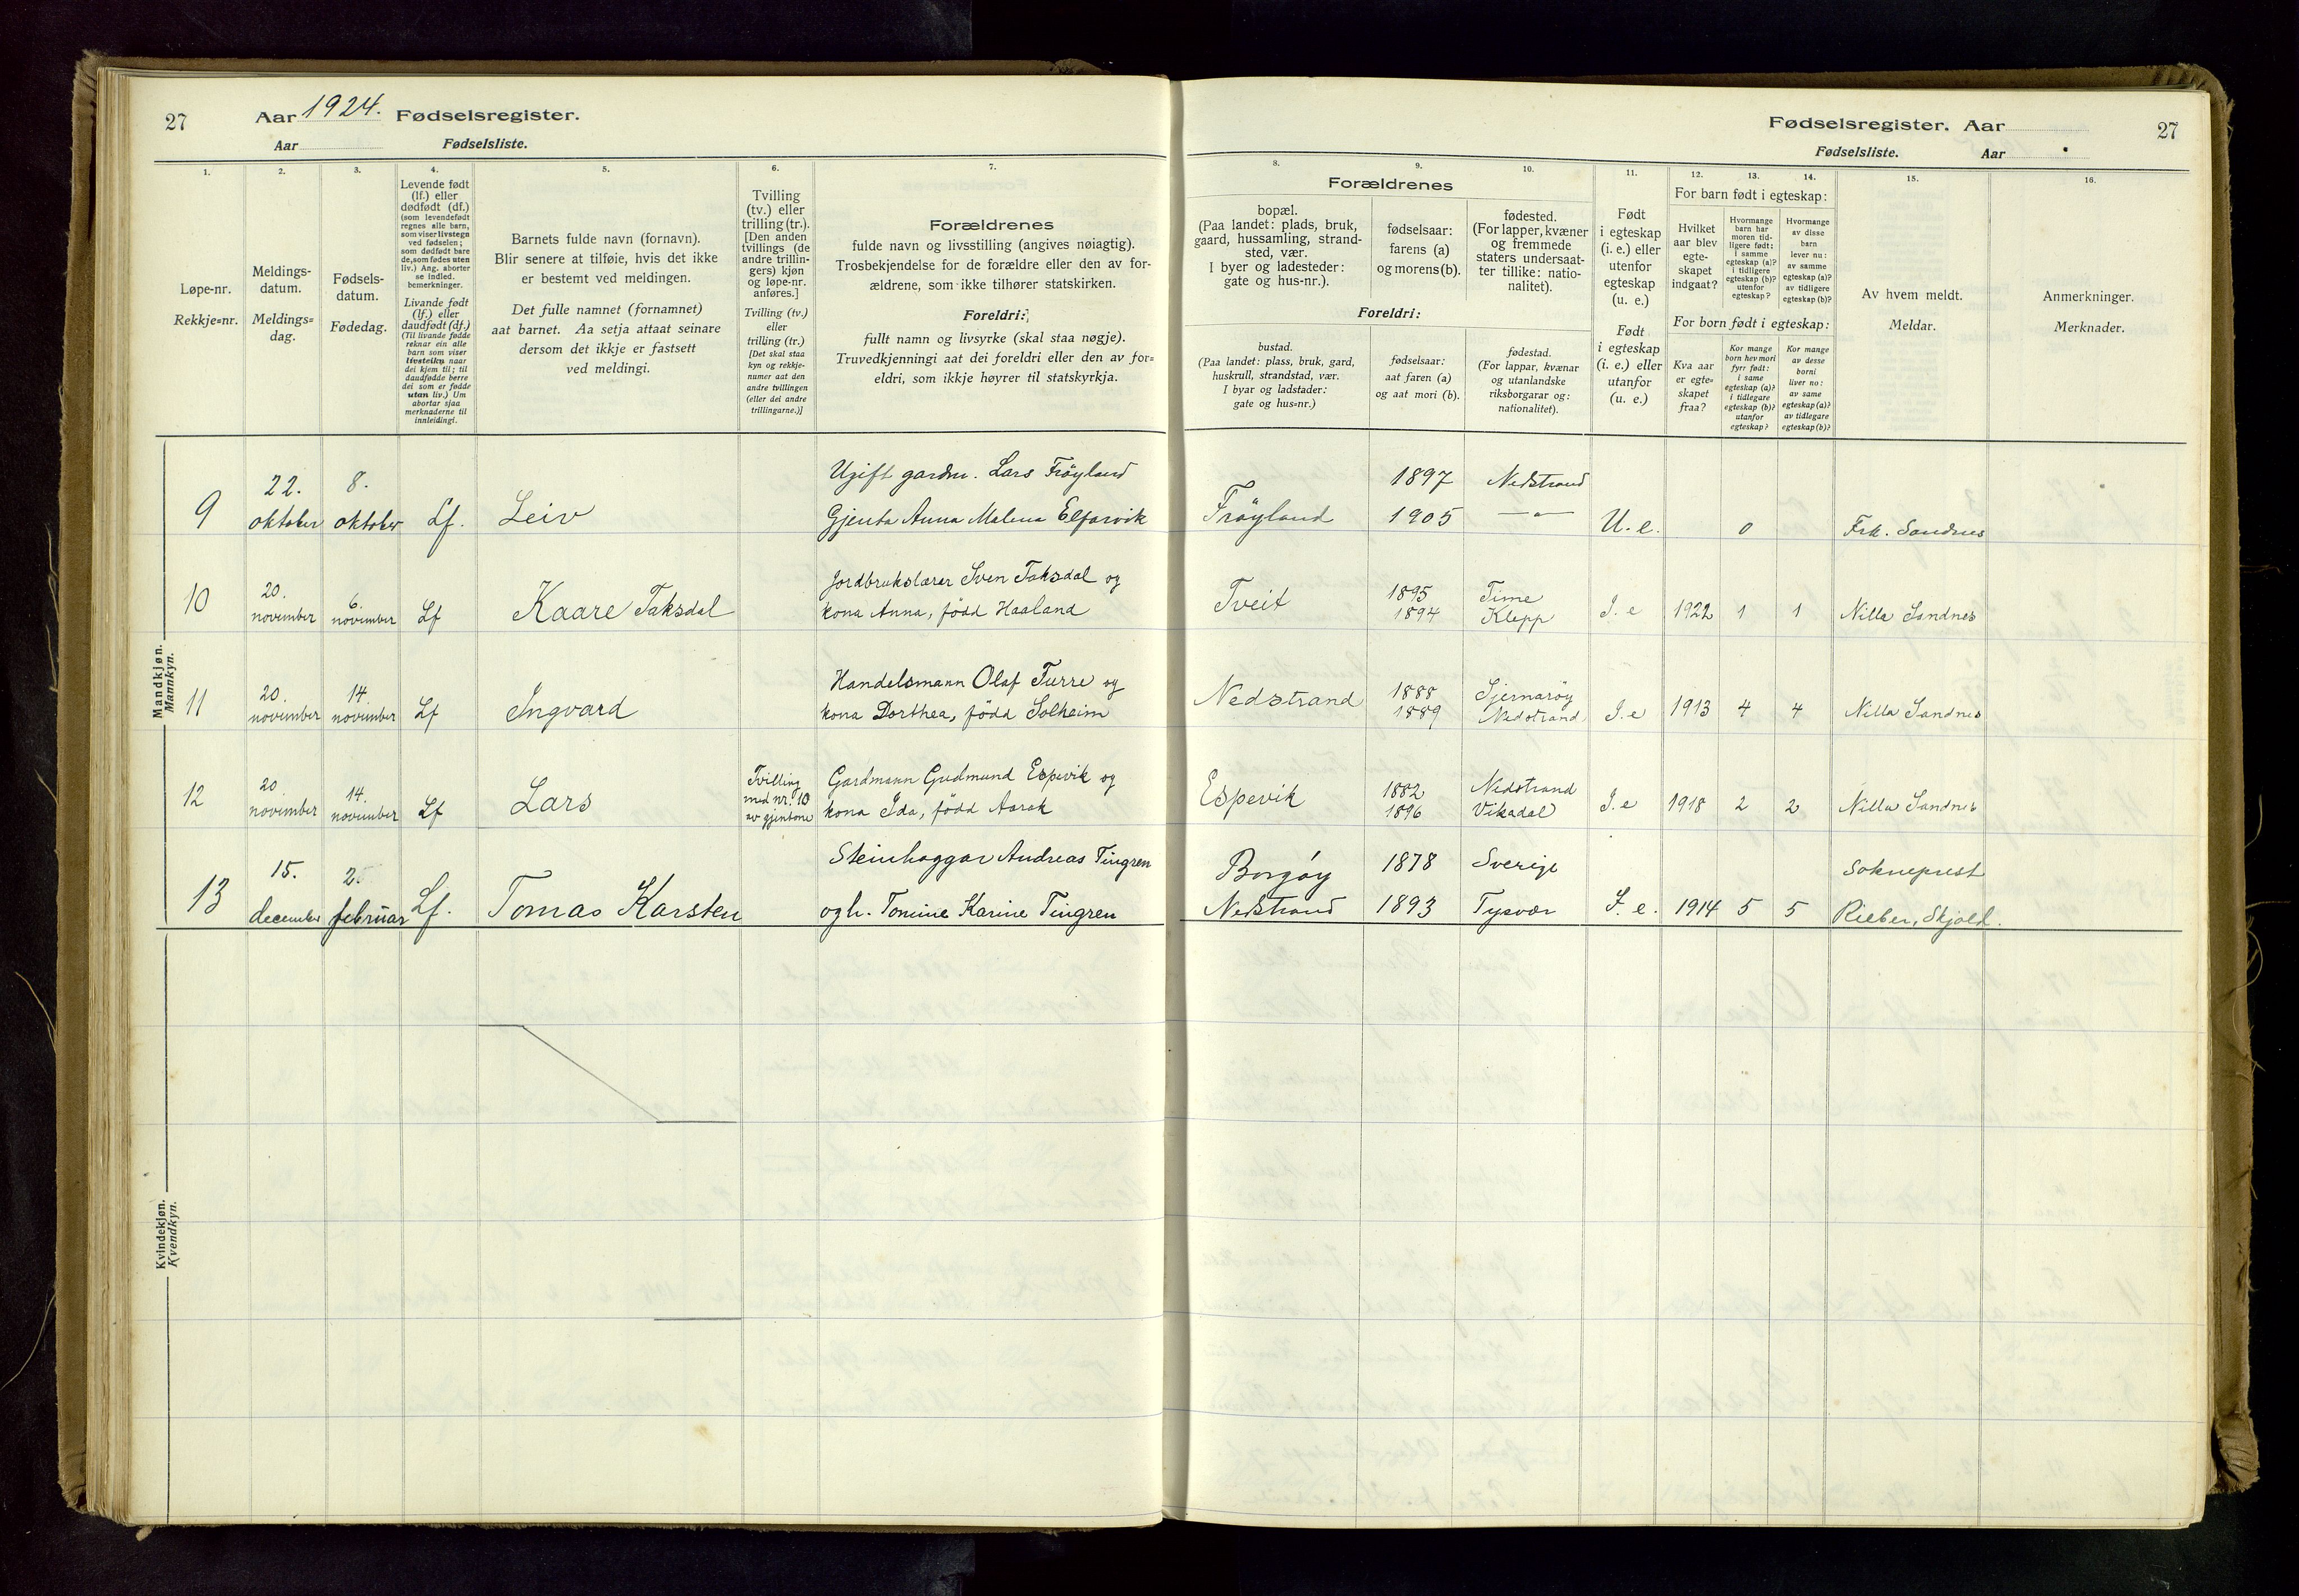 27
Aar 1924. Fødselsregister.
Aar
Fødselsliste.
1.
2.
3.
4.
5.
6.
7.
Løpe-nr.
Rekkje=nr.
Meldings-
datum.
Meldings=
dag.
Fødsels-
datum.
Fødedag.
Levende født
(lf.) eller
dødfødt (df.)
(som levendefødt
regnes alle barn,
som viser livstegn
ved fødselen;
som dødfødt bare
de, som fødes uten
liv.) Ang. aborter
se indled.
bemerkninger.
Livande født
(lf.) eller
daudfødt (df.)
(Til livande fødde
reknar ein alle
barn som viser
livsteikn naar
dei kjem til; til
daudfødde berre
dei som er fødde
utan liv.) Um
abortar sjaa
merknaderne til
innleidingi.
Barnets fulde navn (fornavn).
Blir senere at tilføie, hvis det ikke
er bestemt ved meldingen.
Det fulle namnet (fornamnet)
aat barnet. Aa setja attaat seinare
dersom det ikkje er fastsett
ved meldingi.
Tvilling
(tv.) eller
trilling (tr.).
[Den anden
tvillings (de
andre trillin-
gers) kjøn
og løpe-nr.
anføres.]
Tvilling (tv.)
eller
trilling (tr.)
[Det skal staa
kyn og rekkje-
numer aat den
andre tvillingen
(eller dei andre
trillingarne.)]
Forældrenes
fulde navn og livsstilling (angives nøiagtig).
Trosbekjendelse for de forældre eller den av for-
ældrene, som ikke tilhører statskirken.
Foreldri:
fullt namn og livsyrke (skal staa nøgje).
Truvedkjenningi aat dei foreldri eller den av for=
eldri, som ikkje høyrer til statskyrkja.
Mandkjøn.
Mannkyn.
9
22.
oktober
8.
oktober
Lf.
Leiv
Ugift gardm. Lars Frøyland
Gjenta Anna Malena Elfarvik
10
20.
november
6.
november
Lf
Kaare Taksdal
Jordbrukslærer Sven Taksdal og
kona Anna, född Haaland
11
20.
november
14.
november
Lf
Ingvard
Handelsmann Olaf Turre og
kona Dorthea, född Solheim
12
20
november
14.
november
Lf
Lars
Tvilling
med nr. 10
av gjentone
Gardmann Gudmund Espevik og
kona Ida, född Aarak
13
15.
december
2.
februar
Lf.
Tomas Karsten
Steinhoggar Andreas Tingren
og h. Tomine Karine Tingren
Kvindekjøn.
Kvendkyn.
Fødselsregister. Aar
27
Fødselsliste.
Aar
8.
9.
10.
11.
12.
13.
14.
15.
16.
Forældrenes
bopæl.
(Paa landet: plads, bruk,
gaard, hussamling, strand-
sted, vær.
I byer og ladesteder:
gate og hus-nr.).
fødselsaar:
farens (a)
og morens (b).
fødested.
(For lapper, kvæner
og fremmede
staters undersaat-
ter tillike: natio-
nalitet).
Foreldri:
bustad.
(Paa landet: plass, bruk, gard,
huskrull, strandstad, vær.
I byar og ladstader:
gate og hus=nr.)
fødselsaar:
aat faren (a)
og aat mori (b).
fødestad.
(For lappar, kvænar
og utanlandske
riksborgarar og:
nationalitet).
Født
i egteskap
(i. e.) eller
utenfor
egteskap
(u. e.)
Født
i egteskap
(i. e.) eller
utanfor
(u. e.)
For barn født i egteskap:
Hvilket
aar blev
egte-
skapet
indgaat?
Hvormange
barn har
moren tid-
ligere født:
i samme
egteskap (a)?
i tidligere
egteskap (b)?
utenfor
egteskap?
Hvormange
av disse
barn
lever nu:
av samme
egteskap (a)?
av tidligere
egteskap (b)?
For born født i egteskap:
Kva aar
er egte=
skapet
fraa?
Kor mange
born hev mori
fyrr født:
i same
egteskap (a)?
i tidlegare
egteskap (b)?
utanfor
egteskap?
Kor mange
av desse
borni
liver no:
av same
egteskap (a)?
av tidlegare
egteskap (b)?
Av hvem meldt.
Meldar.
Anmerkninger.
Merknader.
Frøyland
1897
1905
Nedstrand
— " —
U. e.
0
Frk. Sandnes
Tveit
1895
1894
Time
Klepp
I. e
1922
1
1
Nilla Sandnes
Nedstrand
1888
1889
Sjernarøy
Nedstrand
I. e
1913
4
4
Nilla Sandnes
Espevik
1882
1896
Nedstrand
Vikadal
I. e
1918
2
2
Nilla Sandnes
Borgøy
Nedstrand
1878
1893
Sverige
Tysvær
I. e.
1914
5
5
Sokneprest
Rieber, Skjold.